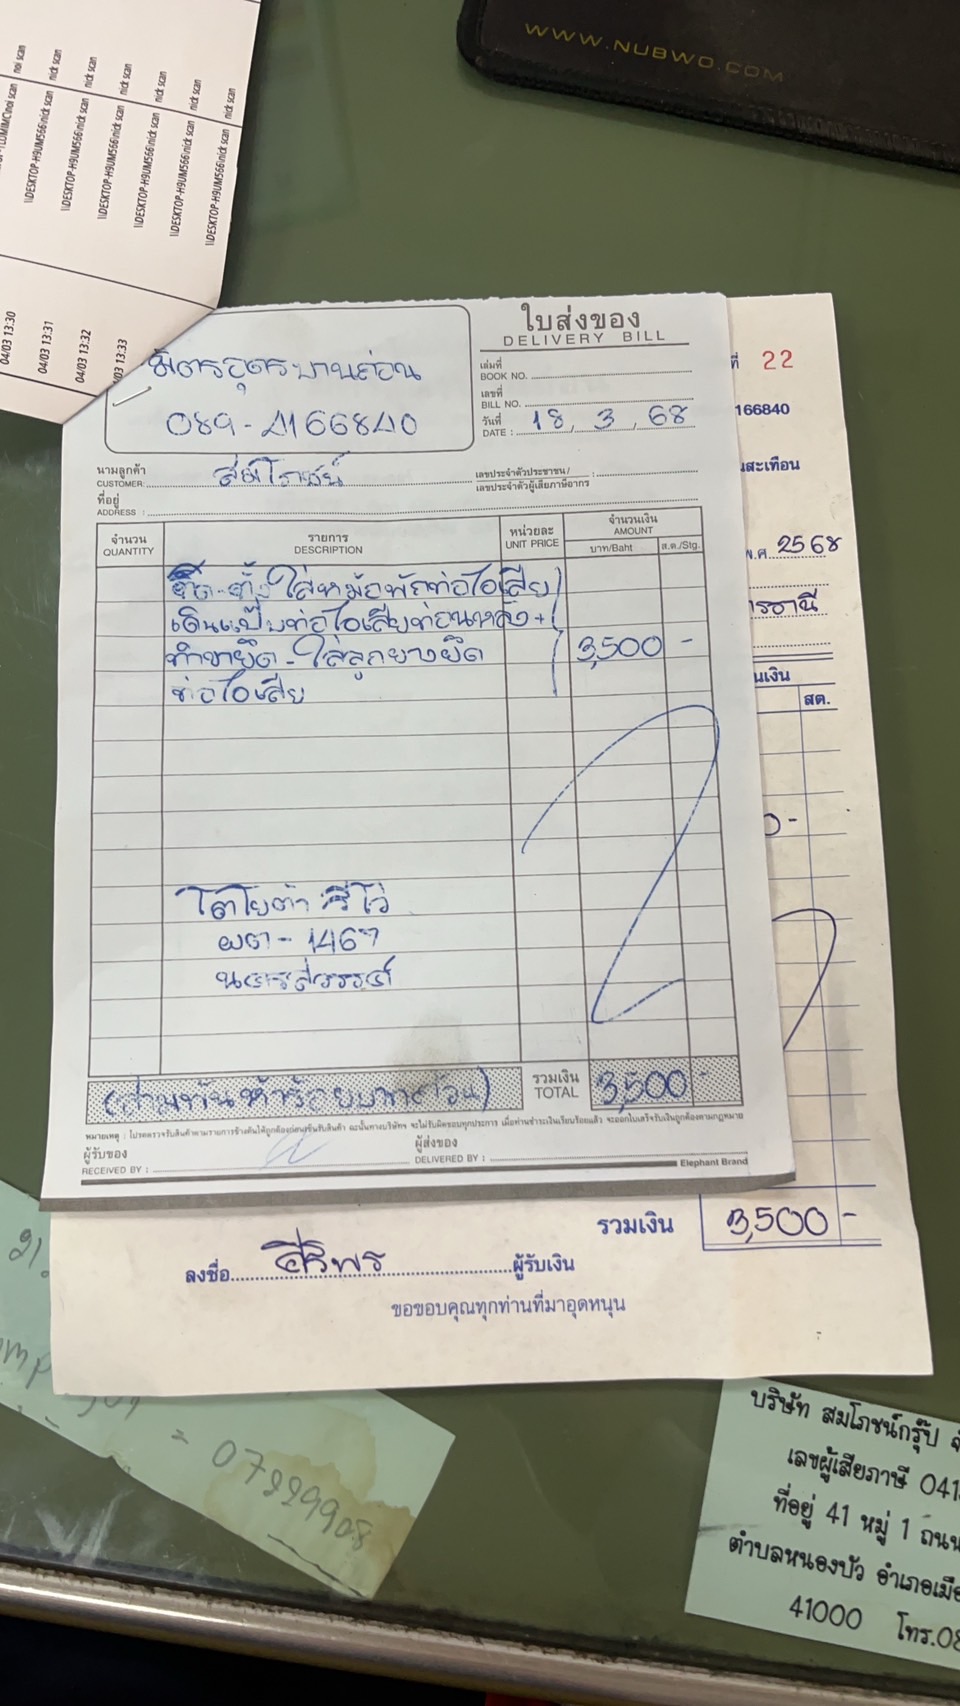 WWW.NUBWO.COM
noi scan
\\DESKTOP-H9UM566\nick scan nick scan
\\DESKTOP-H9UM566\nick scan nick scan
\\DESKTOP-H9UM566\nick scan nick scan
\\DESKTOP-H9UM566\nick scan nick scan
\\DESKTOP-H9UM566\nick scan nick scan
\\DESKTOP-H9UM566\nick scan nick scan
04/03 13:30
04/03 13:31
04/03 13:32
/03 13:33
ใบส่งของ
DELIVERY BILL
มิตรอุดรบานถ่อน
089-4166840
เล่มที่
BOOK NO.
เลขที่
BILL NO.
วันที่
DATE : 18, 3, 68
นามลูกค้า
CUSTOMER: สมโภชน์
เลขประจำตัวประชาชน/
เลขประจำตัวผู้เสียภาษีอากร :
ที่อยู่
ADDRESS :
จำนวน รายการ หน่วยละ จำนวนเงิน
QUANTITY DESCRIPTION UNIT PRICE AMOUNT
บาท/Baht ส.ต./Stg.
ตัด-ตั้ง ใส่หม้อพักท่อไอเสีย
เดินแป๊บท่อไอเสียท่อนหลัง +
ทำขายึด - ใส่ลูกยางยึด 3,500 -
ท่อไอเสีย
โตโยต้า รีโว่
ผตา - 1467
นครสวรรค์
(สามพันห้าร้อยบาทถ้วน) รวมเงิน
TOTAL 3,500 -
หมายเหตุ : โปรดตรวจรับสินค้าตามรายการข้างต้นให้ถูกต้องก่อนเซ็นรับสินค้า
ผู้รับของ
RECEIVED BY :
ผู้ส่งของ
DELIVERED BY :
Elephant Brand
ที่ 22
166840
นสะเทือน
พ.ศ. 2568
รธานี
นเงิน
สต.
0-
รวมเงิน 3,500 -
ลงชื่อ ศิริพร ผู้รับเงิน
ขอขอบคุณทุกท่านที่มาอุดหนุน
บริษัท สมโภชน์กรุ๊ป จ
เลขผู้เสียภาษี 041
ที่อยู่ 41 หมู่ 1 ถนน
ตำบลหนองบัว อำเภอเมือ
41000 โทร.08